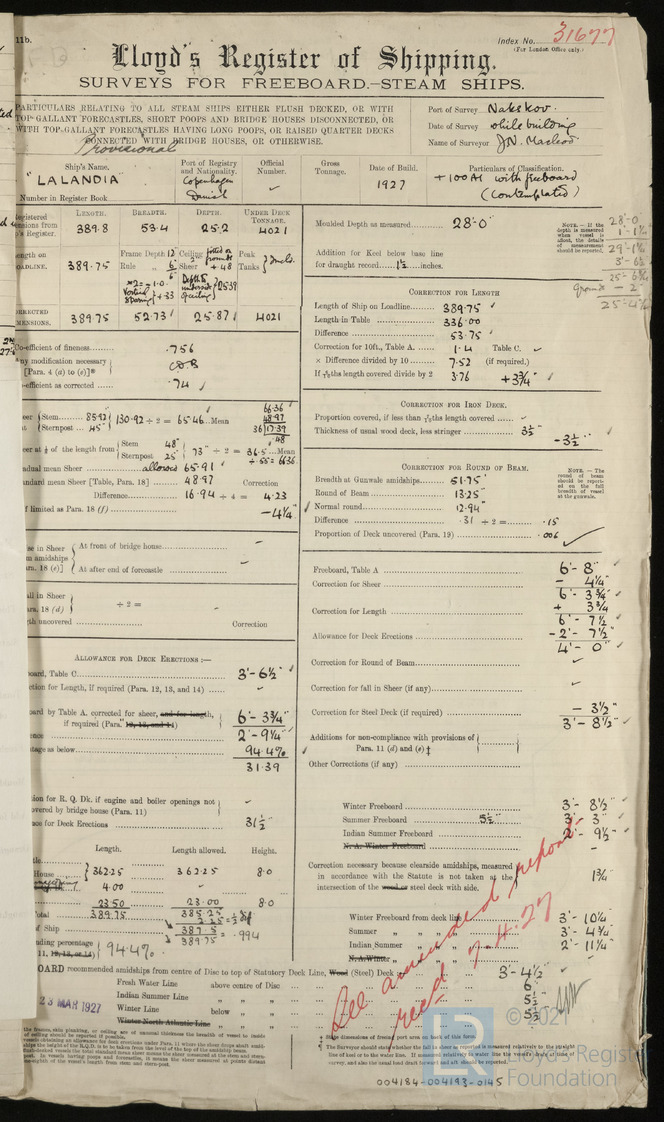 11b.
Index No. 31677
(For London Office only.)
Lloyd's Register of Shipping.
SURVEYS FOR FREEBOARD.—STEAM SHIPS.
PARTICULARS RELATING TO ALL STEAM SHIPS EITHER FLUSH DECKED, OR WITH
TOP-GALLANT FORECASTLES, SHORT POOPS AND BRIDGE HOUSES DISCONNECTED, OR
WITH TOP-GALLANT FORECASTLES HAVING LONG POOPS, OR RAISED QUARTER DECKS
CONNECTED WITH BRIDGE HOUSES, OR OTHERWISE.
Provisional
Port of Survey Nakskov
Date of Survey while building
Name of Surveyor J.N. Macleod
Ship's Name.
"LALANDIA"
Number in Register Book
Port of Registry and Nationality.
Copenhagen
Danish
Official Number.
Gross Tonnage.
Date of Build.
1927
Particulars of Classification.
+100A1 with freeboard
(contemplated)
LENGTH. BREADTH. DEPTH. UNDER DECK TONNAGE.
389.8 53.4 25.2 4021
LOADLINE. 389.75
Frame Depth 12
Rule " 6
Ceiling
Sheer + .48
Peak Tanks
389.75 52.73 25.87 4021
Co-efficient of fineness .756
Any modification necessary
[Para. 4 (a) to (e)]*
Co-efficient as corrected .74
Stem 85.92
Sternpost 45"
130.92 ÷ 2 = 65.46 Mean
66.36
48.97
36 17.39
.48
of the length from Stem 48"
Sternpost 25"
73" ÷ 2 = 36.5 Mean
÷ .55 = 66.36
mean Sheer allowed 65.91
mean Sheer [Table, Para. 18] 48.97 Correction
Difference 16.94 ÷ 4 = 4.23
If limited as Para. 18 (f) −4¼"
in Sheer At front of bridge house
amidships
18 (e)] At after end of forecastle
in Sheer
18 (d) ÷ 2 =
uncovered Correction
ALLOWANCE FOR DECK ERECTIONS :—
Table C 3'-6½"
for Length, if required (Para. 12, 13, and 14)
by Table A. corrected for sheer, and for length,
if required (Para. 12, 13, and 14) 6'-3¾"
2'-9¼"
as below 94.4%
31.39
for R. Q. Dk. if engine and boiler openings not
covered by bridge house (Para. 11)
for Deck Erections 31½"
Length. Length allowed. Height.
House 362.25 362.25 8.0
4.00
23.50 23.00 8.0
Total 389.75 385.25
2.25 = ½ diff
of Ship 387.5
389.75 = .994
percentage
11, 12, 13, or 14) 94.4%
Moulded Depth as measured 28'-0"
Addition for Keel below base line
for draught record 1½ inches.
NOTE.—If the depth is measured when vessel is afloat, the details of measurement should be reported.
28'-0
1'-1¼
29'-1¼
3'-6½
25'-6¾
grounds − 2
25-4¾
CORRECTION FOR LENGTH
Length of Ship on Loadline 389.75
Length in Table 336.00
Difference 53.75
Correction for 10ft., Table A. 1.4 Table C.
× Difference divided by 10 7.52 (if required.)
If 6/10ths length covered divide by 2 3.76 +3¾"
CORRECTION FOR IRON DECK.
Proportion covered, if less than 7/10ths length covered
Thickness of usual wood deck, less stringer 3½ −3½"
CORRECTION FOR ROUND OF BEAM.
Breadth at Gunwale amidships 51.75'
Round of Beam 13.25"
Normal round 12.94"
Difference .31 ÷ 2 = .15
Proportion of Deck uncovered (Para. 19) .006
NOTE.—The round of beam should be reported on the full breadth of vessel at the gunwale.
Freeboard, Table A 6'-8"
Correction for Sheer − 4¼"
6'-3¾"
Correction for Length + 3¾
6'-7½"
Allowance for Deck Erections −2'-7½"
4'-0"
Correction for Round of Beam
Correction for fall in Sheer (if any)
Correction for Steel Deck (if required) − 3½"
3'-8½"
Additions for non-compliance with provisions of
Para. 11 (d) and (e) ‡
Other Corrections (if any)
Winter Freeboard 3'-8½"
Summer Freeboard 5½" 3'-3"
Indian Summer Freeboard 2'-9½"
N. A. Winter Freeboard
Correction necessary because clearside amidships, measured
in accordance with the Statute is not taken at the
intersection of the wood or steel deck with side. 1¾"
Winter Freeboard from deck line 3'-10¼"
Summer " " " " 3'-4¾"
Indian Summer " " " 2'-11¼"
N. A. Winter
See amended report
recd 7.4.27
BOARD recommended amidships from centre of Disc to top of Statutory Deck Line, Wood (Steel) Deck 3'-4½"
Fresh Water Line above centre of Disc 6"
Indian Summer Line " " 5½"
Winter Line below " 5½"
Winter North Atlantic Line " "
23 MAR 1927
The Surveyor should state whether the fall in sheer as reported is measured relatively to the straight
line of keel or to the water line. If measured relatively to water line the vessel's draft at time of
survey, and also the usual load draft forward and aft should be reported.
004184-004193-0145
© 2021
LR
Lloyd's Register
Foundation